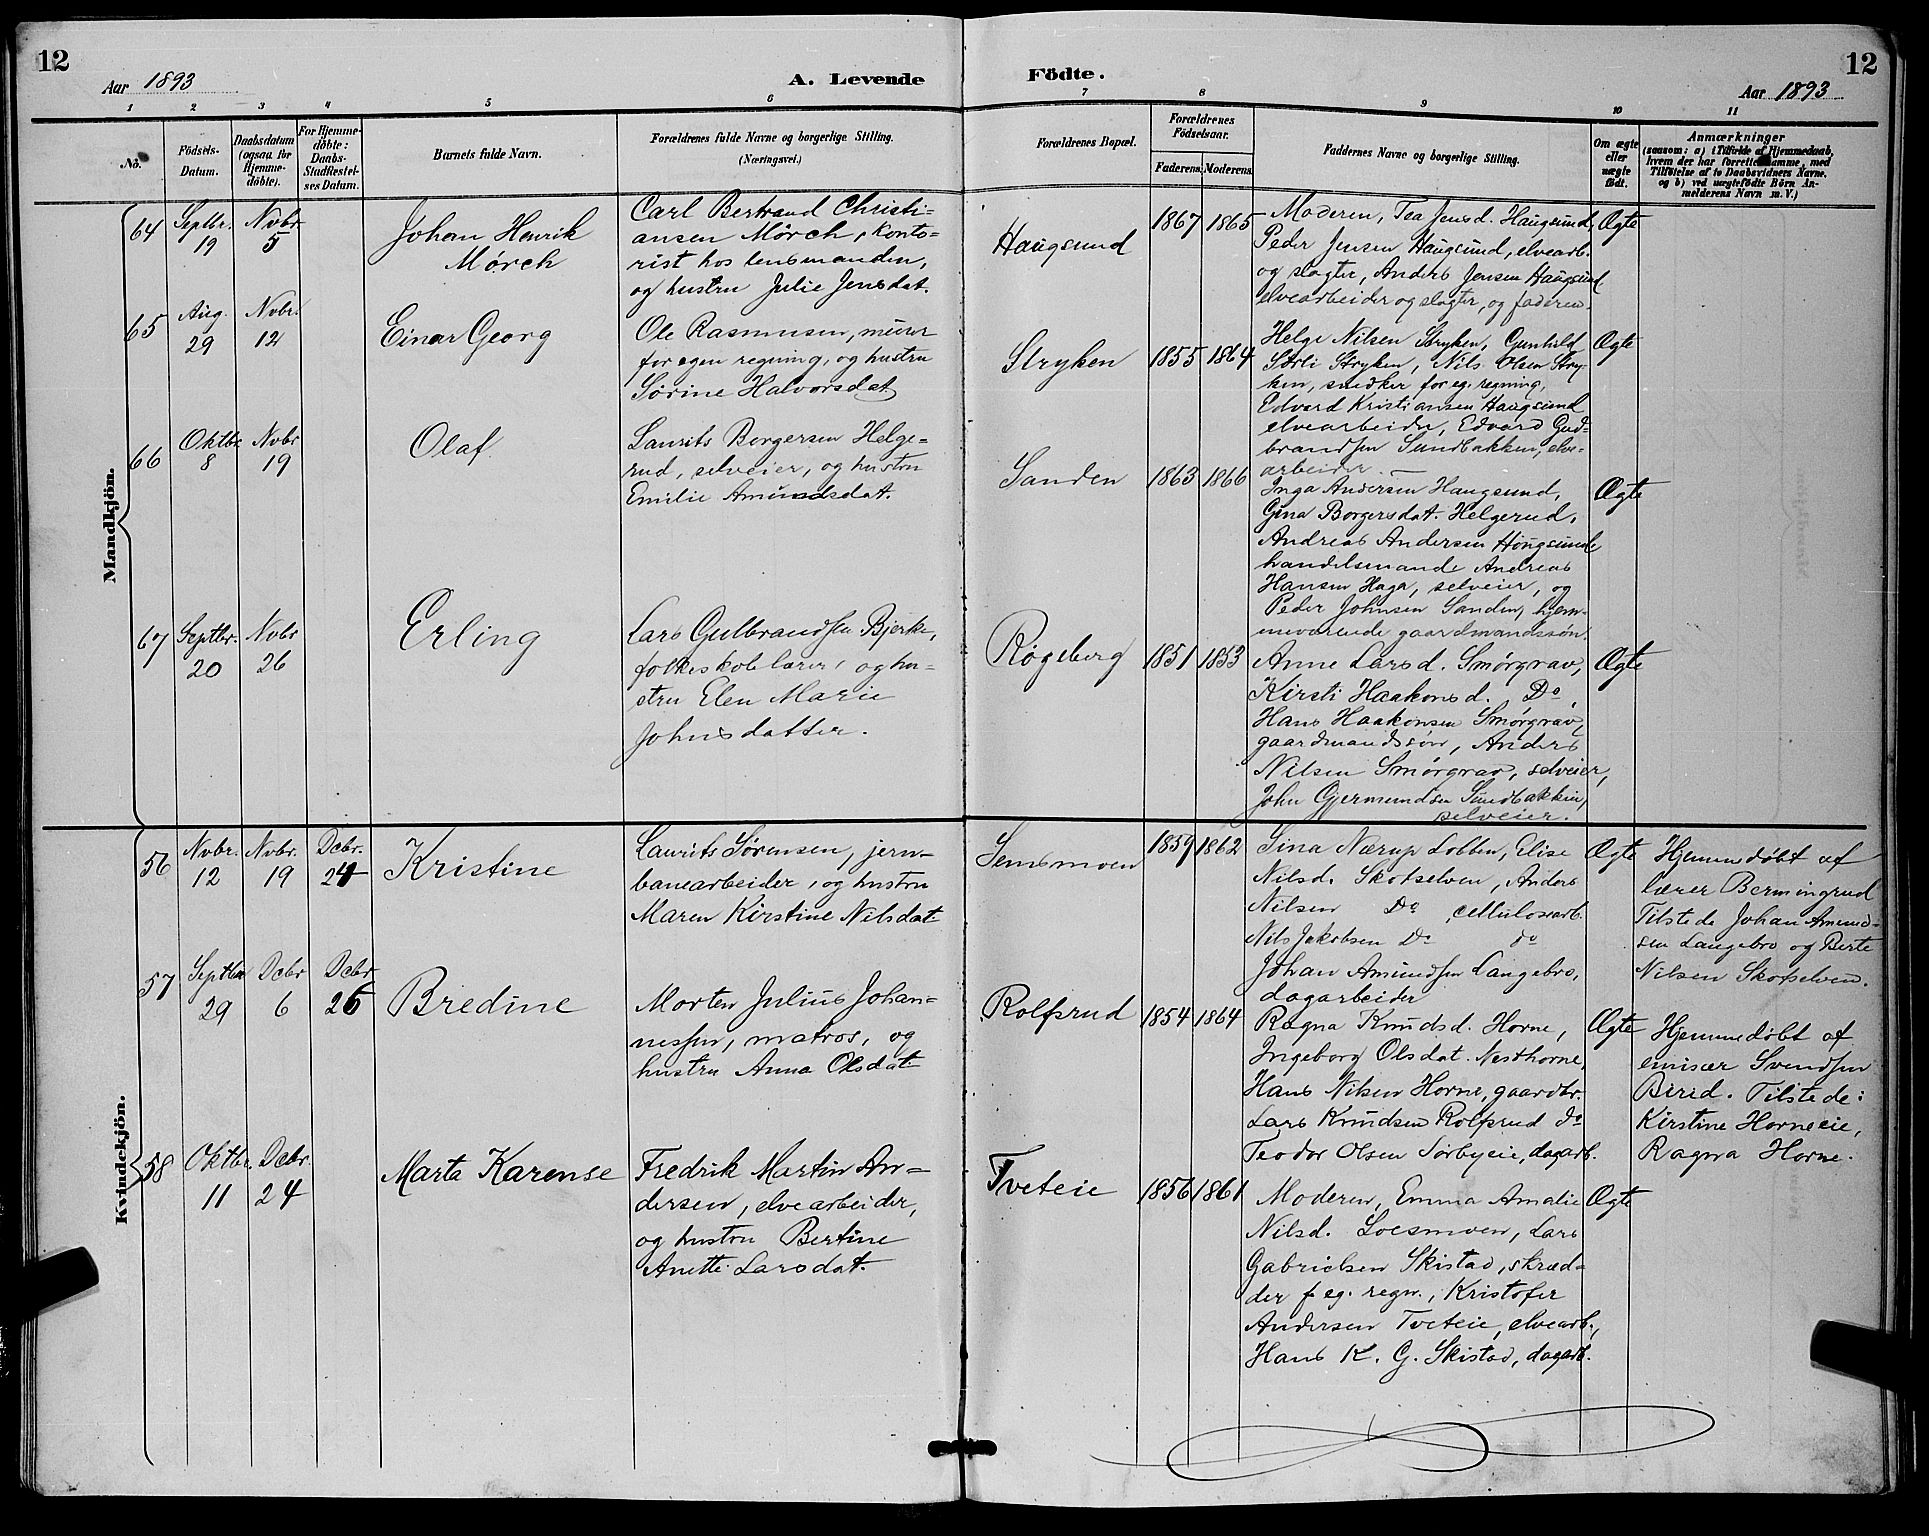 12
Aar 1893
A. Levende
Födte.
Aar 1893
12
1 2 3 4 5 6 7 8 9 10 11
No.
Födsels-
Datum.
Daabsdatum
(ogsaa for
Hjemme-
døbte).
For Hjemme-
døbte:
Daabs-
Stadfæstel-
ses Datum.
Barnets fulde Navn.
Forældrenes fulde Navne og borgerlige Stilling.
(Næringsvei.)
Forældrenes Bopæl.
Forældrenes
Födselsaar.
Faderens Moderens
Faddernes Navne og borgerlige Stilling.
Om ægte
eller
uægte
født.
Anmærkninger
(saasom: a) i Tilfælde af Hjemmedaab,
hvem der har forrettet samme, med
Tilföielse af to Daabsvidners Navne,
og b) ved uægtefödte Börn An-
melderens Navn m. V.)
Mandkjön.
64
Septbr.
19
Novbr
5
Johan Henrik
Mørch
Carl Bertrand Christi-
ansen Mørch, konto-
rist hos lensmanden,
og hustru Julie Jensdat.
Haugsund
1867 1865
Moderen, Tea Jensd. Haugsund,
Peder Jensen Haugsund, elvearb.
og slagter, Anders Jensen Haugsund
elvearbeider og slagter, og faderen.
Ægte
65
Aug.
29
Nvbr.
12
Einar Georg
Ole Rasmusen, murer
for egen regning, og hustru
Sørine Halvorsdat
Stryken
1855 1864
Helge Nilsen Stryken, Gunhild
Sørli Stryken, Nils Olsen Stry-
ken, snedker for eg. regning,
Edvard Kristiansen Haugsund
elvearbeider, Edvard Gud-
brandsen Sundbakken, elve-
arbeider.
Ægte
66
Oktbr
8
Nvbr
19
Olaf
Laurits Borgersen Helge-
rud, selveier, og hustru
Emilie Amundsdat.
Sanden
1863 1866
Inga Andersen Haugsund,
Gina Borgersdat. Helgerud,
Andreas Andersen Hougsund
handelsmand Andreas
Hansen Haga, selveier, og
Peder Johnsen Sanden, hjem-
meværende gaardmandssøn.
Ægte
67
Septbr.
20
Nvbr
26
Erling
Lars Gulbrandsen Bjerke,
folkeskolelærer, og hu-
stru Elen Marie
Johnsdatter.
Røgeberg
1851 1853
Anne Larsd. Smørgrav,
Kirsti Haakonsd. Do,
Hans Haakonsen Smørgrav,
gaardmandssøn, Anders
Nilsen Smørgrav, selveier,
John Gjermundsen Sundbakken,
selveier.
Ægte
Kvindekjön.
56
Nvbr.
12
Nvbr.
19
Dcbr.
24
Kristine
Laurits Sørensen, jern-
banearbeider, og hustru
Maren Kirstine Nilsdat
Semsmoen
1859 1862
Sina Nærup Lobben, Elise
Nilsd. Skotselven, Anders
Nilsen Do, cellulosearb.
Nils Jakobsen Do do
Johan Amundsen Langebro,
dagarbeider
Ægte
Hjemmedøbt af
lærer Bermingrud
Tilstede Johan Amund-
sen Langebro og Berte
Nilsen Skotselven.
57
Septbr
29
Dcbr
6
Dcbr
26
Bredine
Morten Julius Johan-
nessen, matros, og
hustru Anna Olsdat
Rolfsrud
1854 1864
Ragna Knudsd. Horne,
Ingeborg Olsdat. Nesthorne,
Hans Nilsen Horne, gaardbr.
Lars Knudsen Rolfsrud do
Teodor Olsen Sørbyeie, dagarb.
Ægte
Hjemmedøbt af
emisær Svendsen
Bired. Tilstede:
Kirstine Horneeie,
Ragna Horne.
58
Oktbr.
11
Dcbr.
24
Marta Karense
Fredrik Martin An-
dersen, elvearbeider,
og hustru Bertine
Anette Larsdat.
Tveteie
1856 1861
Moderen, Emma Amalie
Nilsd. Loesmoen, Lars
Gabrielsen Skistad, skræd-
der f. eg. regn., Kristofer
Andersen Tveteie, elvearb.,
Hans K. G. Skistad, dagarb.
Ægte